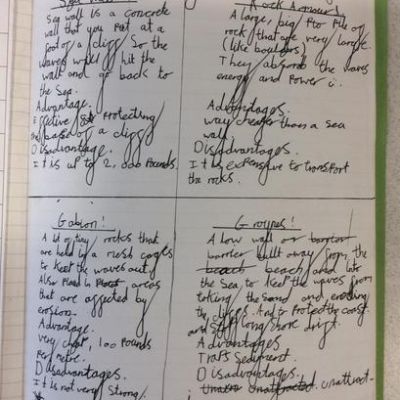 Sea wall
Sea wall is a concrete
wall that you put at a
foot of a cliff so the
waves will hit the
wall and go back to
the sea.
Advantage.
Effective protecting
the base of a cliff
Disadvantage.
It is up to 2,000 pounds.
Rock Armour!
A large, big pile of
rock that are very large.
(like boulders)
They absorb the waves
energy and power
Advantages.
way cheaper than a sea
wall.
Disadvantages.
It is expensive to transport
the rocks.
Gabion!
A lot of tiny rocks that
are held in a mesh cages
to keep the waves out.
Also placed in areas
that are affected by
erosion.
Advantage.
very cheap, 100 Pounds
Per metre.
Disadvantages.
It is not very strong.
Groynes!
A low wall or barrier
barrier built away from the
beach beach and into
the sea, to keep the waves from
taking the sand and eroding
the cliffs. And protect the coast
and long shore drift.
Advantages
Traps sediment.
Disadvantages.
Unattracted unattract-